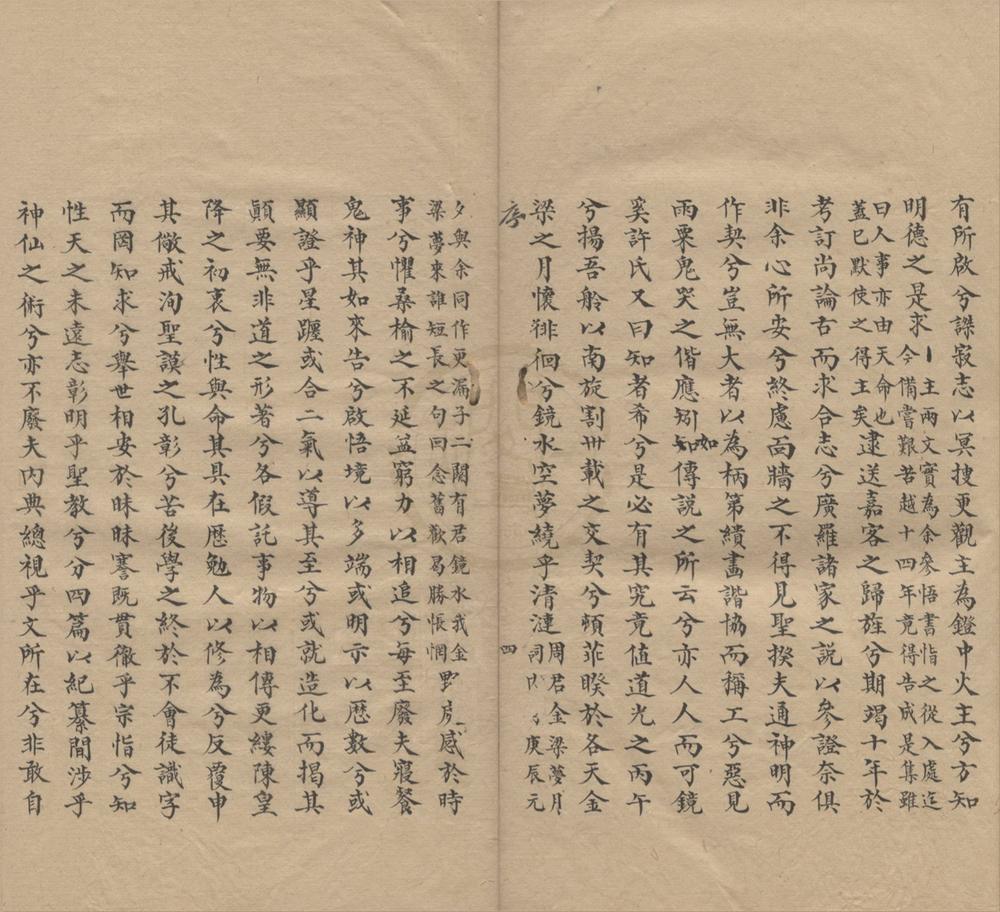 有所啟兮謋寂志以冥搜更觀主為鐙中火主兮方知
明德之是求
丨主兩文實為余參悟書恉之從入處迄
今備嘗艱苦越十四年竟得告成是集雖
曰人事亦由天命也
蓋已默使之得主矣
逮送嘉客之歸旌兮期竭十年於
考訂尚論古而求合志兮廣羅諸家之説以參證奈俱
非余心所安兮終慮面牆之不得見聖揆夫通神明而
作契兮豈無大者以為柄第繢畫諧協而稱工兮惡見
雨粟鬼哭之偕應矧知如傳説之所云兮亦人人而可鏡
奚許氏又曰知者希兮是必有其究竟值道光之丙午
兮揚吾舲以南旋割卅載之交契兮頓菲暌於各天金
梁之月懷徘徊兮鏡水空夢繞乎清漣
周君金梁夢月
詞庚辰元
序
四
夕與余同作更漏子二闋有君鏡水我金
梁夢來誰短長之句回念舊歡曷勝悵惘
感於時
事兮懼桑榆之不延益窮力以相追兮每至廢夫寢餐
鬼神其如來告兮啟悟境以多端或明示以歷數兮或
顯證乎星躔或合二氣以導其至兮或就造化而揭其
顛要無非道之形著兮各假託事物以相傳更縷陳皇
降之初衷兮性與命其具在歷勉人以修為兮反覆申
其儆戒洵聖謨之孔彰兮苦後學之終於不會徒識字
而罔知求兮舉世相安於昧昧謇既貫徹乎宗恉兮知
性天之未遠志彰明乎聖教兮分四篇以紀纂間涉乎
神仙之術兮亦不廢夫内典總視乎文所在兮非敢自